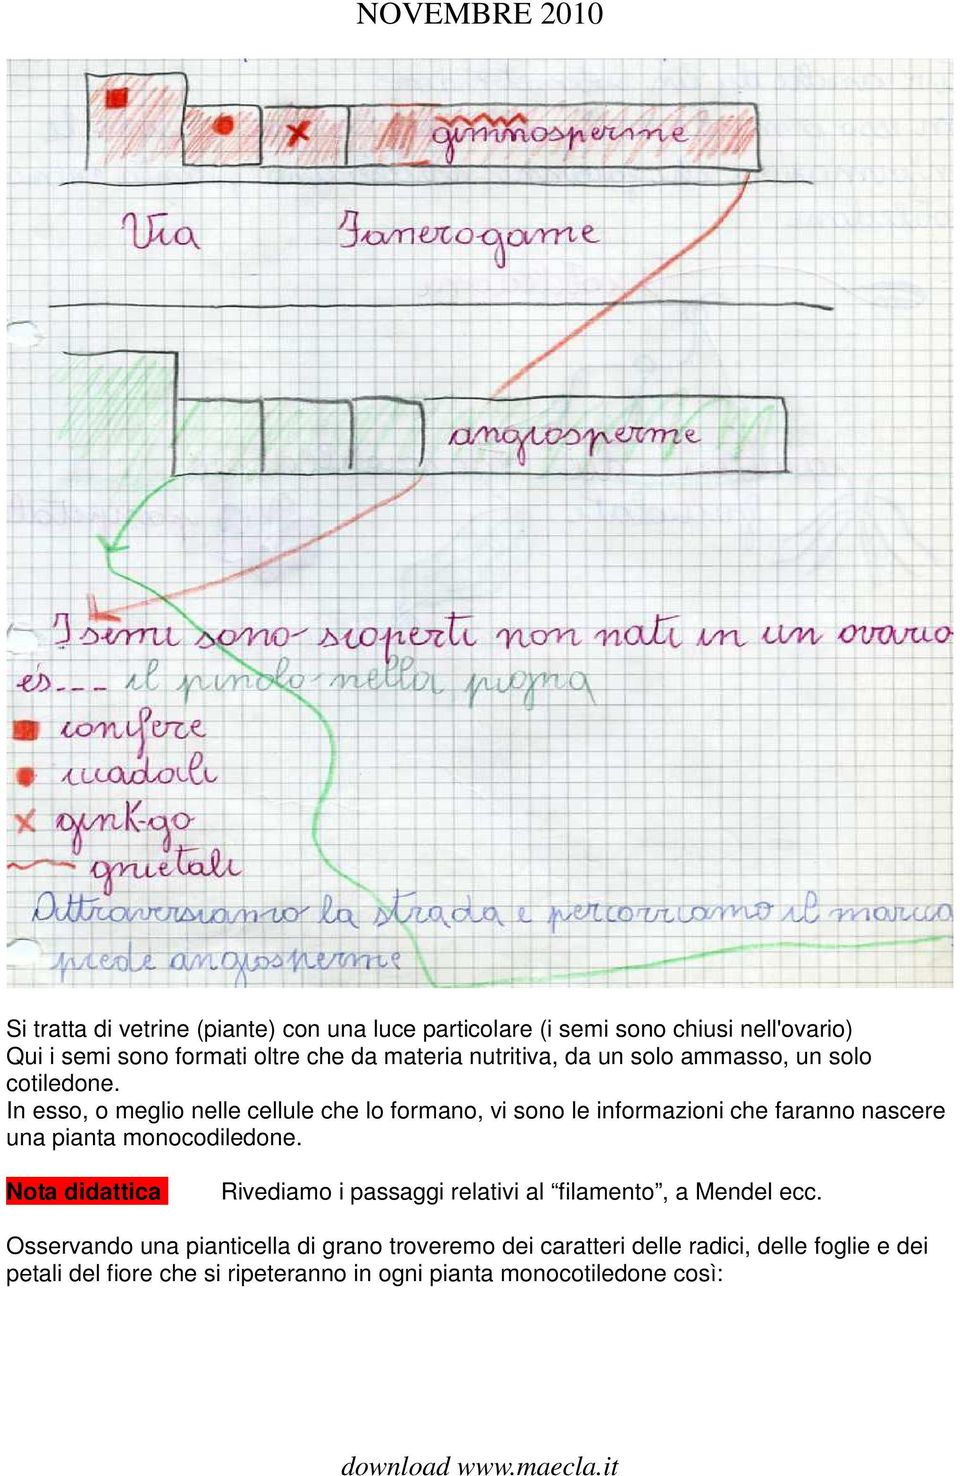 NOVEMBRE 2010
gimnosperme
Via Fanerogame
angiosperme
I semi sono scoperti non nati in un ovario
es--- il pinolo nella pigna
conifere
cicadali
gink-go
gnietali
Attraversiamo la strada e percorriamo il marcia
piede angiosperme
Si tratta di vetrine (piante) con una luce particolare (i semi sono chiusi nell'ovario)
Qui i semi sono formati oltre che da materia nutritiva, da un solo ammasso, un solo
cotiledone.
In esso, o meglio nelle cellule che lo formano, vi sono le informazioni che faranno nascere
una pianta monocodiledone.
Nota didattica Rivediamo i passaggi relativi al “filamento”, a Mendel ecc.
Osservando una pianticella di grano troveremo dei caratteri delle radici, delle foglie e dei
petali del fiore che si ripeteranno in ogni pianta monocotiledone così:
download www.maecla.it